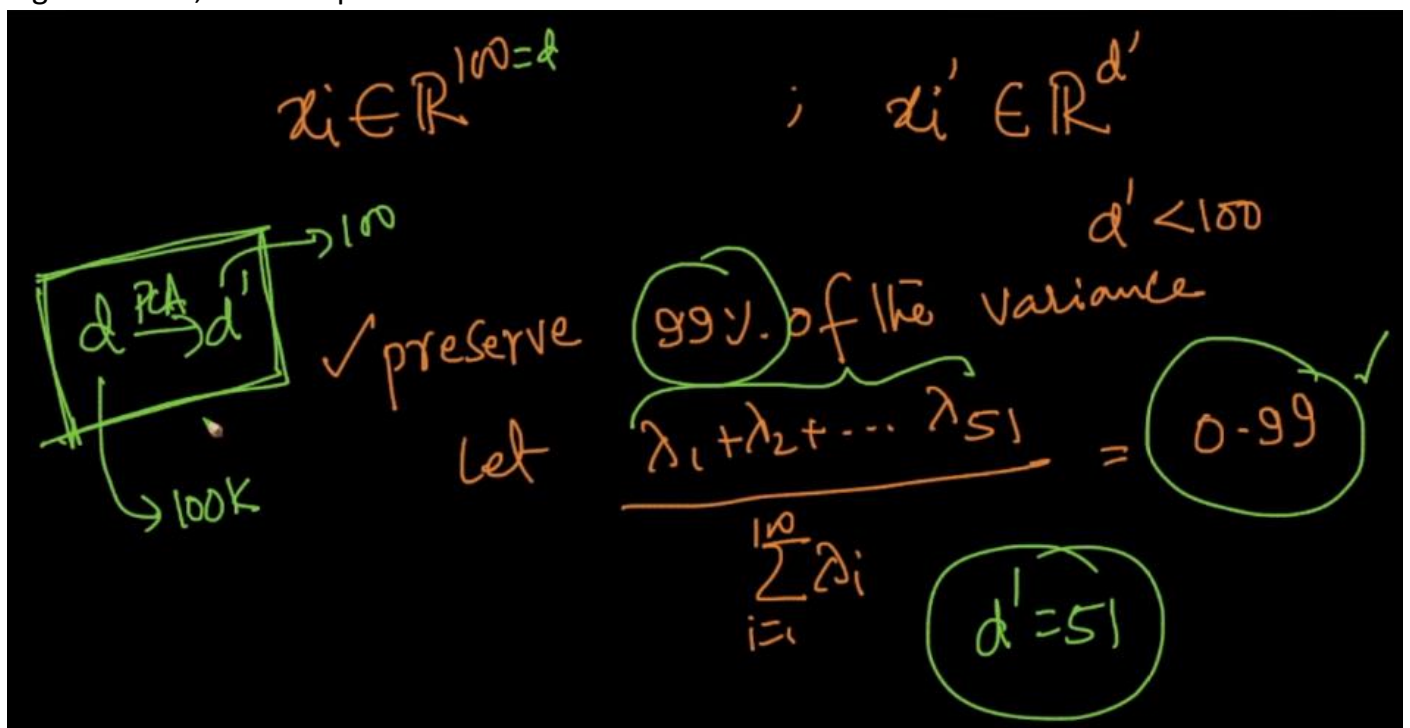 xi ∈ ℝ^100=d ; xi' ∈ ℝ^d'
d' < 100
d PCA→ d' → 100
→ 100K
✓ preserve 99% of the variance
Let λ1 + λ2 + ... λ51 / ∑ i=1 100 λi = 0.99 ✓
d' = 51